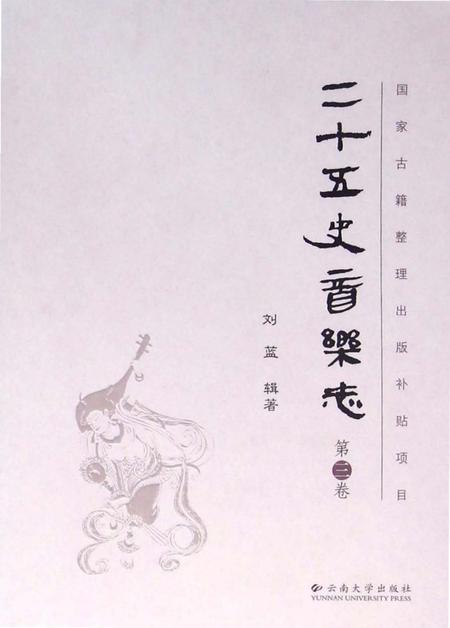 国家古籍整理出版补贴项目
二十五史音樂志
第三卷
刘蓝 辑著
云南大学出版社
YUNNAN UNIVERSITY PRESS